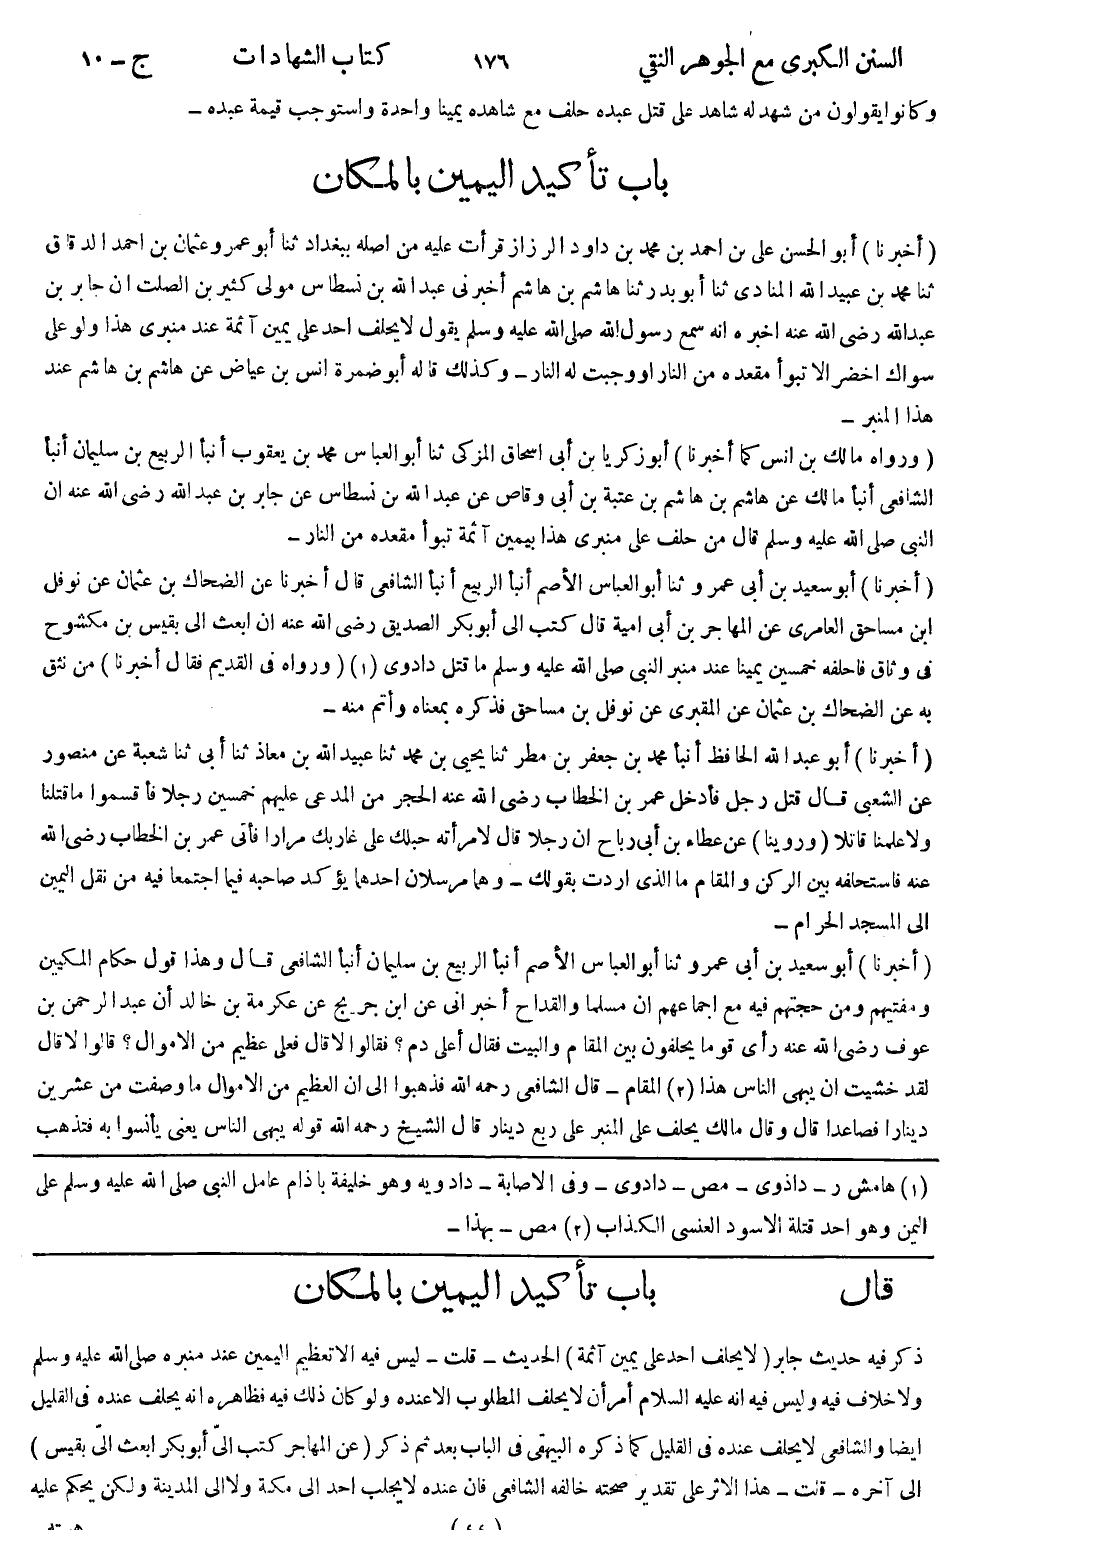 السنن الكبرى مع الجوهر النقي ١٧٦ كتاب الشهادات ج – ١٠
وكانوا يقولون من شهد له شاهد على قتل عبده حلف مع شاهده يمينا واحدة واستوجب قيمة عبده –
باب تأكيد اليمين بالمكان
( أخبرنا ) أبو الحسن على بن احمد بن محمد بن داود الرزاز قرأت عليه من اصله ببغداد ثنا أبو عمرو عثمان بن احمد الدقاق
ثنا محمد بن عبيد الله المنادى ثنا أبو بدر ثنا هاشم بن هاشم أخبرنى عبد الله بن نسطاس مولى كثير بن الصلت ان جابر بن
عبدالله رضى الله عنه اخبره انه سمع رسول الله صلى الله عليه وسلم يقول لا يحلف احد على يمين آثمة عند منبرى هذا ولو على
سواك اخضر الا تبوأ مقعده من النار او وجبت له النار – وكذلك قاله أبو ضمرة انس بن عياض عن هاشم بن هاشم عند
هذا المنبر –
( ورواه مالك بن انس كما أخبرنا ) أبو زكريا بن أبى اسحاق المزكى ثنا أبو العباس محمد بن يعقوب أنبأ الربيع بن سليمان أنبأ
الشافعى أنبأ مالك عن هاشم بن هاشم بن عتبة بن أبى وقاص عن عبد الله بن نسطاس عن جابر بن عبد الله رضى الله عنه ان
النبى صلى الله عليه وسلم قال من حلف على منبرى هذا بيمين آثمة تبوأ مقعده من النار –
( أخبرنا ) أبو سعيد بن أبى عمرو ثنا أبو العباس الأصم أنبأ الربيع أنبأ الشافعى قال أخبرنا عن الضحاك بن عثمان عن نوفل
ابن مساحق العامرى عن المهاجر بن أبى امية قال كتب الى أبو بكر الصديق رضى الله عنه ان ابعث الى بقيس بن مكشوح
فى وثاق فاحلفه خمسين يمينا عند منبر النبى صلى الله عليه وسلم ما قتل دادوى (١) ( ورواه فى القديم فقال أخبرنا ) من نثق
به عن الضحاك بن عثمان عن المقبرى عن نوفل بن مساحق فذكره بمعناه وأتم منه –
( أخبرنا ) أبو عبد الله الحافظ أنبأ محمد بن جعفر بن مطر ثنا يحيى بن محمد ثنا عبيد الله بن معاذ ثنا أبى ثنا شعبة عن منصور
عن الشعبى قال قتل رجل فأدخل عمر بن الخطاب رضى الله عنه الحجر من المدعى عليهم خمسين رجلا فأقسموا ما قتلنا
ولا علمنا قاتلا ( وروينا ) عن عطاء بن أبى رباح ان رجلا قال لامرأته حبلك على غاربك مرارا فأتى عمر بن الخطاب رضى الله
عنه فاستحلفه بين الركن والمقام ما الذى اردت بقولك – وهما مرسلان احدهما يؤكد صاحبه فيما اجتمعا فيه من نقل اليمين
الى المسجد الحرام –
( أخبرنا ) أبو سعيد بن أبى عمرو ثنا أبو العباس الأصم أنبأ الربيع بن سليمان أنبأ الشافعى قال وهذا قول حكام المكيين
ومفتيهم ومن حجتهم فيه مع اجماعهم ان مسلما والقداح أخبرانى عن ابن جريج عن عكرمة بن خالد أن عبد الرحمن بن
عوف رضى الله عنه رأى قوما يحلفون بين المقام والبيت فقال أعلى دم ؟ فقالوا لا قال فعلى عظيم من الاموال ؟ قالوا لا قال
لقد خشيت ان يبهى الناس هذا (٢) المقام – قال الشافعى رحمه الله فذهبوا الى ان العظيم من الاموال ما وصفت من عشرين
دينارا فصاعدا قال وقال مالك يحلف على المنبر على ربع دينار قال الشيخ رحمه الله قوله يبهى الناس يعنى يأنسوا به فتذهب
(١) هامش ر – داذوى – مص – دادوى – وفى الاصابة – دادويه وهو خليفة باذام عامل النبى صلى الله عليه وسلم على
اليمن وهو احد قتلة الاسود العنسى الكذاب (٢) مص – بهذا –
قال باب تأكيد اليمين بالمكان
ذكر فيه حديث جابر ( لا يحلف احد على يمين آثمة ) الحديث – قلت – ليس فيه الا تعظيم اليمين عند منبره صلى الله عليه وسلم
ولا خلاف فيه وليس فيه انه عليه السلام أمر أن لا يحلف المطلوب الا عنده ولو كان ذلك فيه فظاهره انه يحلف عنده فى القليل
ايضا والشافعى لا يحلف عنده فى القليل كما ذكره البيهقى فى الباب بعد ثم ذكر ( عن المهاجر كتب الىّ أبو بكر ابعث الىّ بقيس )
الى آخره – قلت – هذا الاثر على تقدير صحته خالفه الشافعى فان عنده لا يجلب احد الى مكة ولا الى المدينة ولكن يحكم عليه